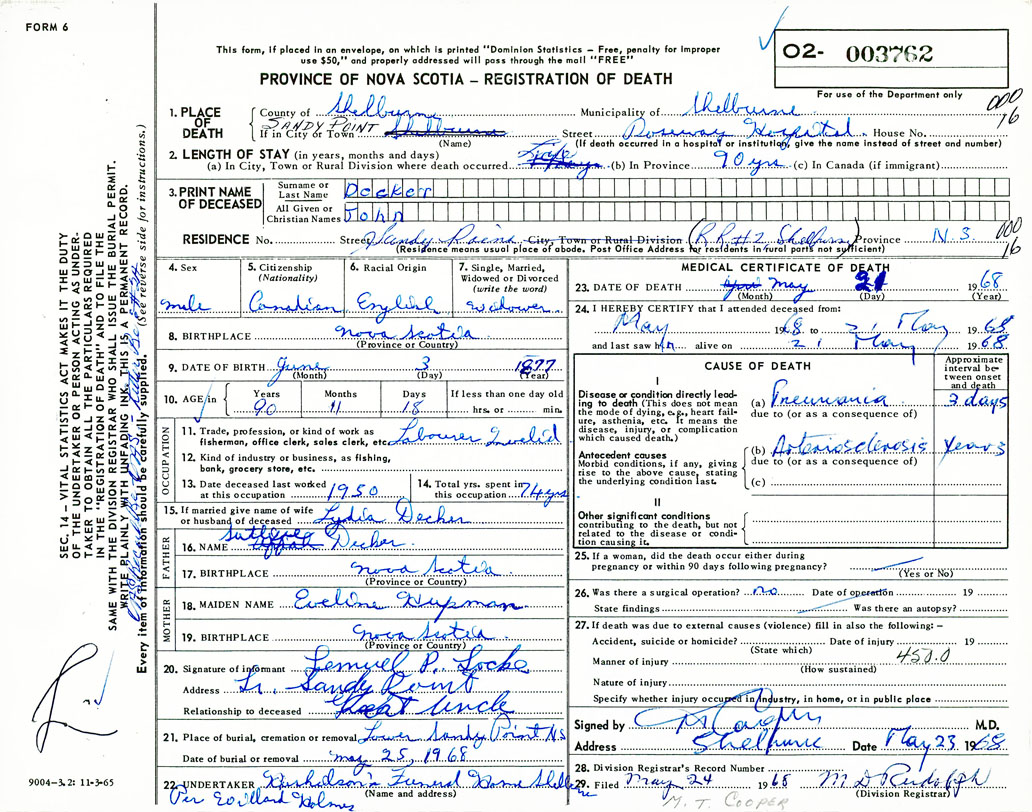 FORM 6
This form, if placed in an envelope, on which is printed "Dominion Statistics – Free, penalty for improper
use $50," and properly addressed will pass through the mail "FREE"
PROVINCE OF NOVA SCOTIA – REGISTRATION OF DEATH
O2- 003762
For use of the Department only
000
16
1. PLACE OF DEATH
County of Shelburne Municipality of Shelburne
SANDY POINT
If in City or Town Shelburne Street Roseway Hospital House No.
(Name) (If death occurred in a hospital or institution, give the name instead of street and number)
2. LENGTH OF STAY (in years, months and days)
(a) In City, Town or Rural Division where death occurred Life (b) In Province 90 yrs (c) In Canada (if immigrant)
3. PRINT NAME OF DECEASED
Surname or Last Name Decker
All Given or Christian Names John
RESIDENCE No. Street Sandy Point City, Town or Rural Division (RR#2 Shelburne) Province N.S
(Residence means usual place of abode. Post Office Address for residents in rural parts not sufficient)
000
16
4. Sex male
5. Citizenship (Nationality) Canadian
6. Racial Origin English
7. Single, Married, Widowed or Divorced (write the word) Widower
8. BIRTHPLACE Nova Scotia
(Province or Country)
9. DATE OF BIRTH June 3 1877
(Month) (Day) (Year)
10. AGE in Years 90 Months 11 Days 18 If less than one day old hrs. or min.
OCCUPATION
11. Trade, profession, or kind of work as fisherman, office clerk, sales clerk, etc. Labourer Invalid
12. Kind of industry or business, as fishing, bank, grocery store, etc.
13. Date deceased last worked at this occupation 1950
14. Total yrs. spent in this occupation 74 yrs
15. If married give name of wife or husband of deceased Lydia Decker
FATHER
16. NAME Decker
17. BIRTHPLACE Nova Scotia
(Province or Country)
MOTHER
18. MAIDEN NAME Eveline Hupman
19. BIRTHPLACE Nova Scotia
(Province or Country)
20. Signature of informant Lemuel P. Locke
Address Lr. Sandy Point
Relationship to deceased Great Uncle
21. Place of burial, cremation or removal Lower Sandy Point NS
Date of burial or removal May 25, 1968
22. UNDERTAKER Nickolson's Funeral Home Shelburne
(Name and address)
Per Willard Holmes
MEDICAL CERTIFICATE OF DEATH
23. DATE OF DEATH May 21 1968
(Month) (Day) (Year)
24. I HEREBY CERTIFY that I attended deceased from:
May 1968 to 21 May 1968
and last saw him alive on 21 May 1968
CAUSE OF DEATH
Approximate interval between onset and death
I
Disease or condition directly leading to death (This does not mean the mode of dying, e.g., heart failure, asthenia, etc. It means the disease, injury, or complication which caused death.)
(a) Pneumonia 3 days
due to (or as a consequence of)
Antecedent causes
Morbid conditions, if any, giving rise to the above cause, stating the underlying condition last.
(b) Arteriosclerosis years
due to (or as a consequence of)
(c)
II
Other significant conditions contributing to the death, but not related to the disease or condition causing it.
25. If a woman, did the death occur either during pregnancy or within 90 days following pregnancy?
(Yes or No)
26. Was there a surgical operation? no Date of operation 19
State findings Was there an autopsy?
27. If death was due to external causes (violence) fill in also the following: –
Accident, suicide or homicide? Date of injury 19
(State which)
450.0
Manner of injury
(How sustained)
Nature of injury
Specify whether injury occurred in Industry, in home, or in public place
Signed by M.D.
Address Shelburne Date May 23 1968
28. Division Registrar's Record Number
29. Filed May 24 1968 M D Rudolph
(Division Registrar)
M. T. COOPER
SEC. 14 – VITAL STATISTICS ACT MAKES IT THE DUTY
OF THE UNDERTAKER OR PERSON ACTING AS UNDER-
TAKER TO OBTAIN ALL THE PARTICULARS REQUIRED
IN THE "REGISTRATION OF DEATH" AND TO FILE THE
SAME WITH THE DIVISION REGISTRAR WHO SHALL ISSUE THE BURIAL PERMIT.
WRITE PLAINLY WITH UNFADING INK. THIS IS A PERMANENT RECORD.
Every item of information should be carefully supplied. (See reverse side for instructions.)
9004–3.2: 11-3-65